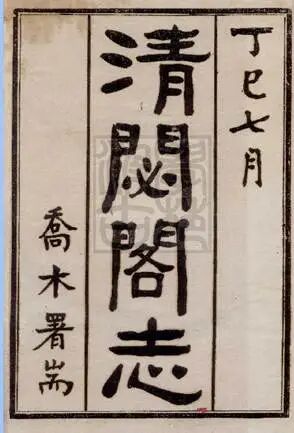 丁巳七月
清閟閣志
喬木署耑